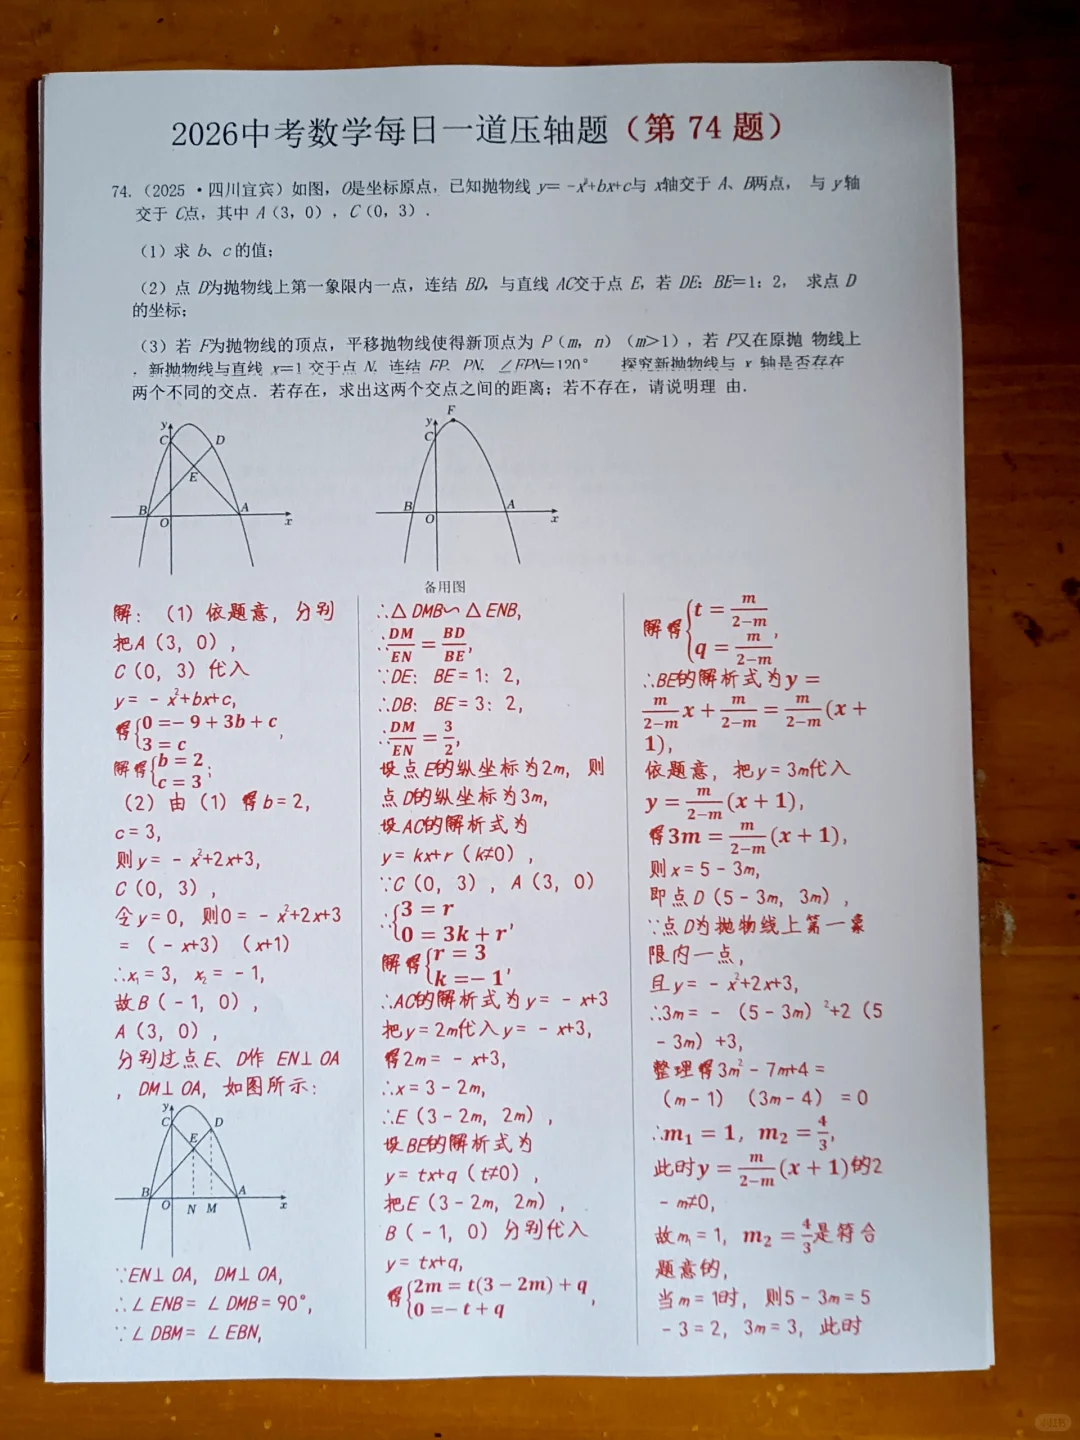 2026中考数学每日一道压轴题（第 74 题）
74.（2025 · 四川宜宾）如图，O是坐标原点，已知抛物线 y= -x²+bx+c与 x轴交于 A、B两点， 与 y轴
交于 C点，其中 A（3，0），C（0，3）.
（1）求 b、c 的值；
（2）点 D为抛物线上第一象限内一点，连结 BD，与直线 AC交于点 E，若 DE：BE=1：2， 求点 D
的坐标；
（3）若 F为抛物线的顶点，平移抛物线使得新顶点为 P（m，n）（m>1），若 P又在原抛 物线上
，新抛物线与直线 x=1 交于点 N，连结 FP、PN，∠FPN=120° 探究新抛物线与 x 轴是否存在
两个不同的交点．若存在，求出这两个交点之间的距离；若不存在，请说明理 由．
y
C
D
E
B
O
A
x
F
y
C
B
O
A
x
备用图
解：（1）依题意，分别
把A（3，0），
C（0，3）代入
y= - x²+bx+c,
得{0 =- 9 + 3b + c
3 = c,
解得{b = 2
c = 3;
（2）由（1）得b=2,
c=3,
则y= - x²+2x+3,
C（0，3），
令y=0，则0= - x²+2x+3
=（- x+3）（x+1）
∴x₁=3，x₂= - 1,
故B（- 1，0），
A（3，0），
分别过点E、D作 EN⊥OA
，DM⊥OA，如图所示：
y
C
D
E
B
O
N
M
A
x
∵EN⊥OA，DM⊥OA,
∴∠ENB=∠DMB=90°,
∵∠DBM=∠EBN,
∴△DMB∽△ENB,
∴DM/EN = BD/BE,
∵DE：BE=1：2,
∴DB：BE=3：2,
∴DM/EN = 3/2,
设点E的纵坐标为2m，则
点D的纵坐标为3m,
设AC的解析式为
y=kx+r（k≠0），
∵C（0，3），A（3，0）
∴{3 = r
0 = 3k + r,
解得{r = 3
k =- 1,
∴AC的解析式为y= - x+3
把y=2m代入y= - x+3,
得2m= - x+3,
∴x=3 - 2m,
∴E（3 - 2m，2m），
设BE的解析式为
y=tx+q（t≠0），
把E（3 - 2m，2m），
B（- 1，0）分别代入
y=tx+q,
得{2m = t(3 - 2m) + q
0 =- t + q,
解得{t = m/(2-m)
q = m/(2-m),
∴BE的解析式为y =
m/(2-m)x + m/(2-m) = m/(2-m)(x +
1),
依题意，把y=3m代入
y = m/(2-m)(x + 1),
得3m = m/(2-m)(x + 1),
则x=5 - 3m,
即点D（5 - 3m，3m），
∵点D为抛物线上第一象
限内一点，
且y= - x²+2x+3,
∴3m= -（5 - 3m）²+2（5
- 3m）+3,
整理得3m² - 7m+4=
（m - 1）（3m - 4）=0
∴m₁ = 1, m₂ = 4/3,
此时y = m/(2-m)(x + 1)的2
- m≠0,
故m₁=1，m₂ = 4/3是符合
题意的，
当m=1时，则5 - 3m=5
- 3=2，3m=3，此时